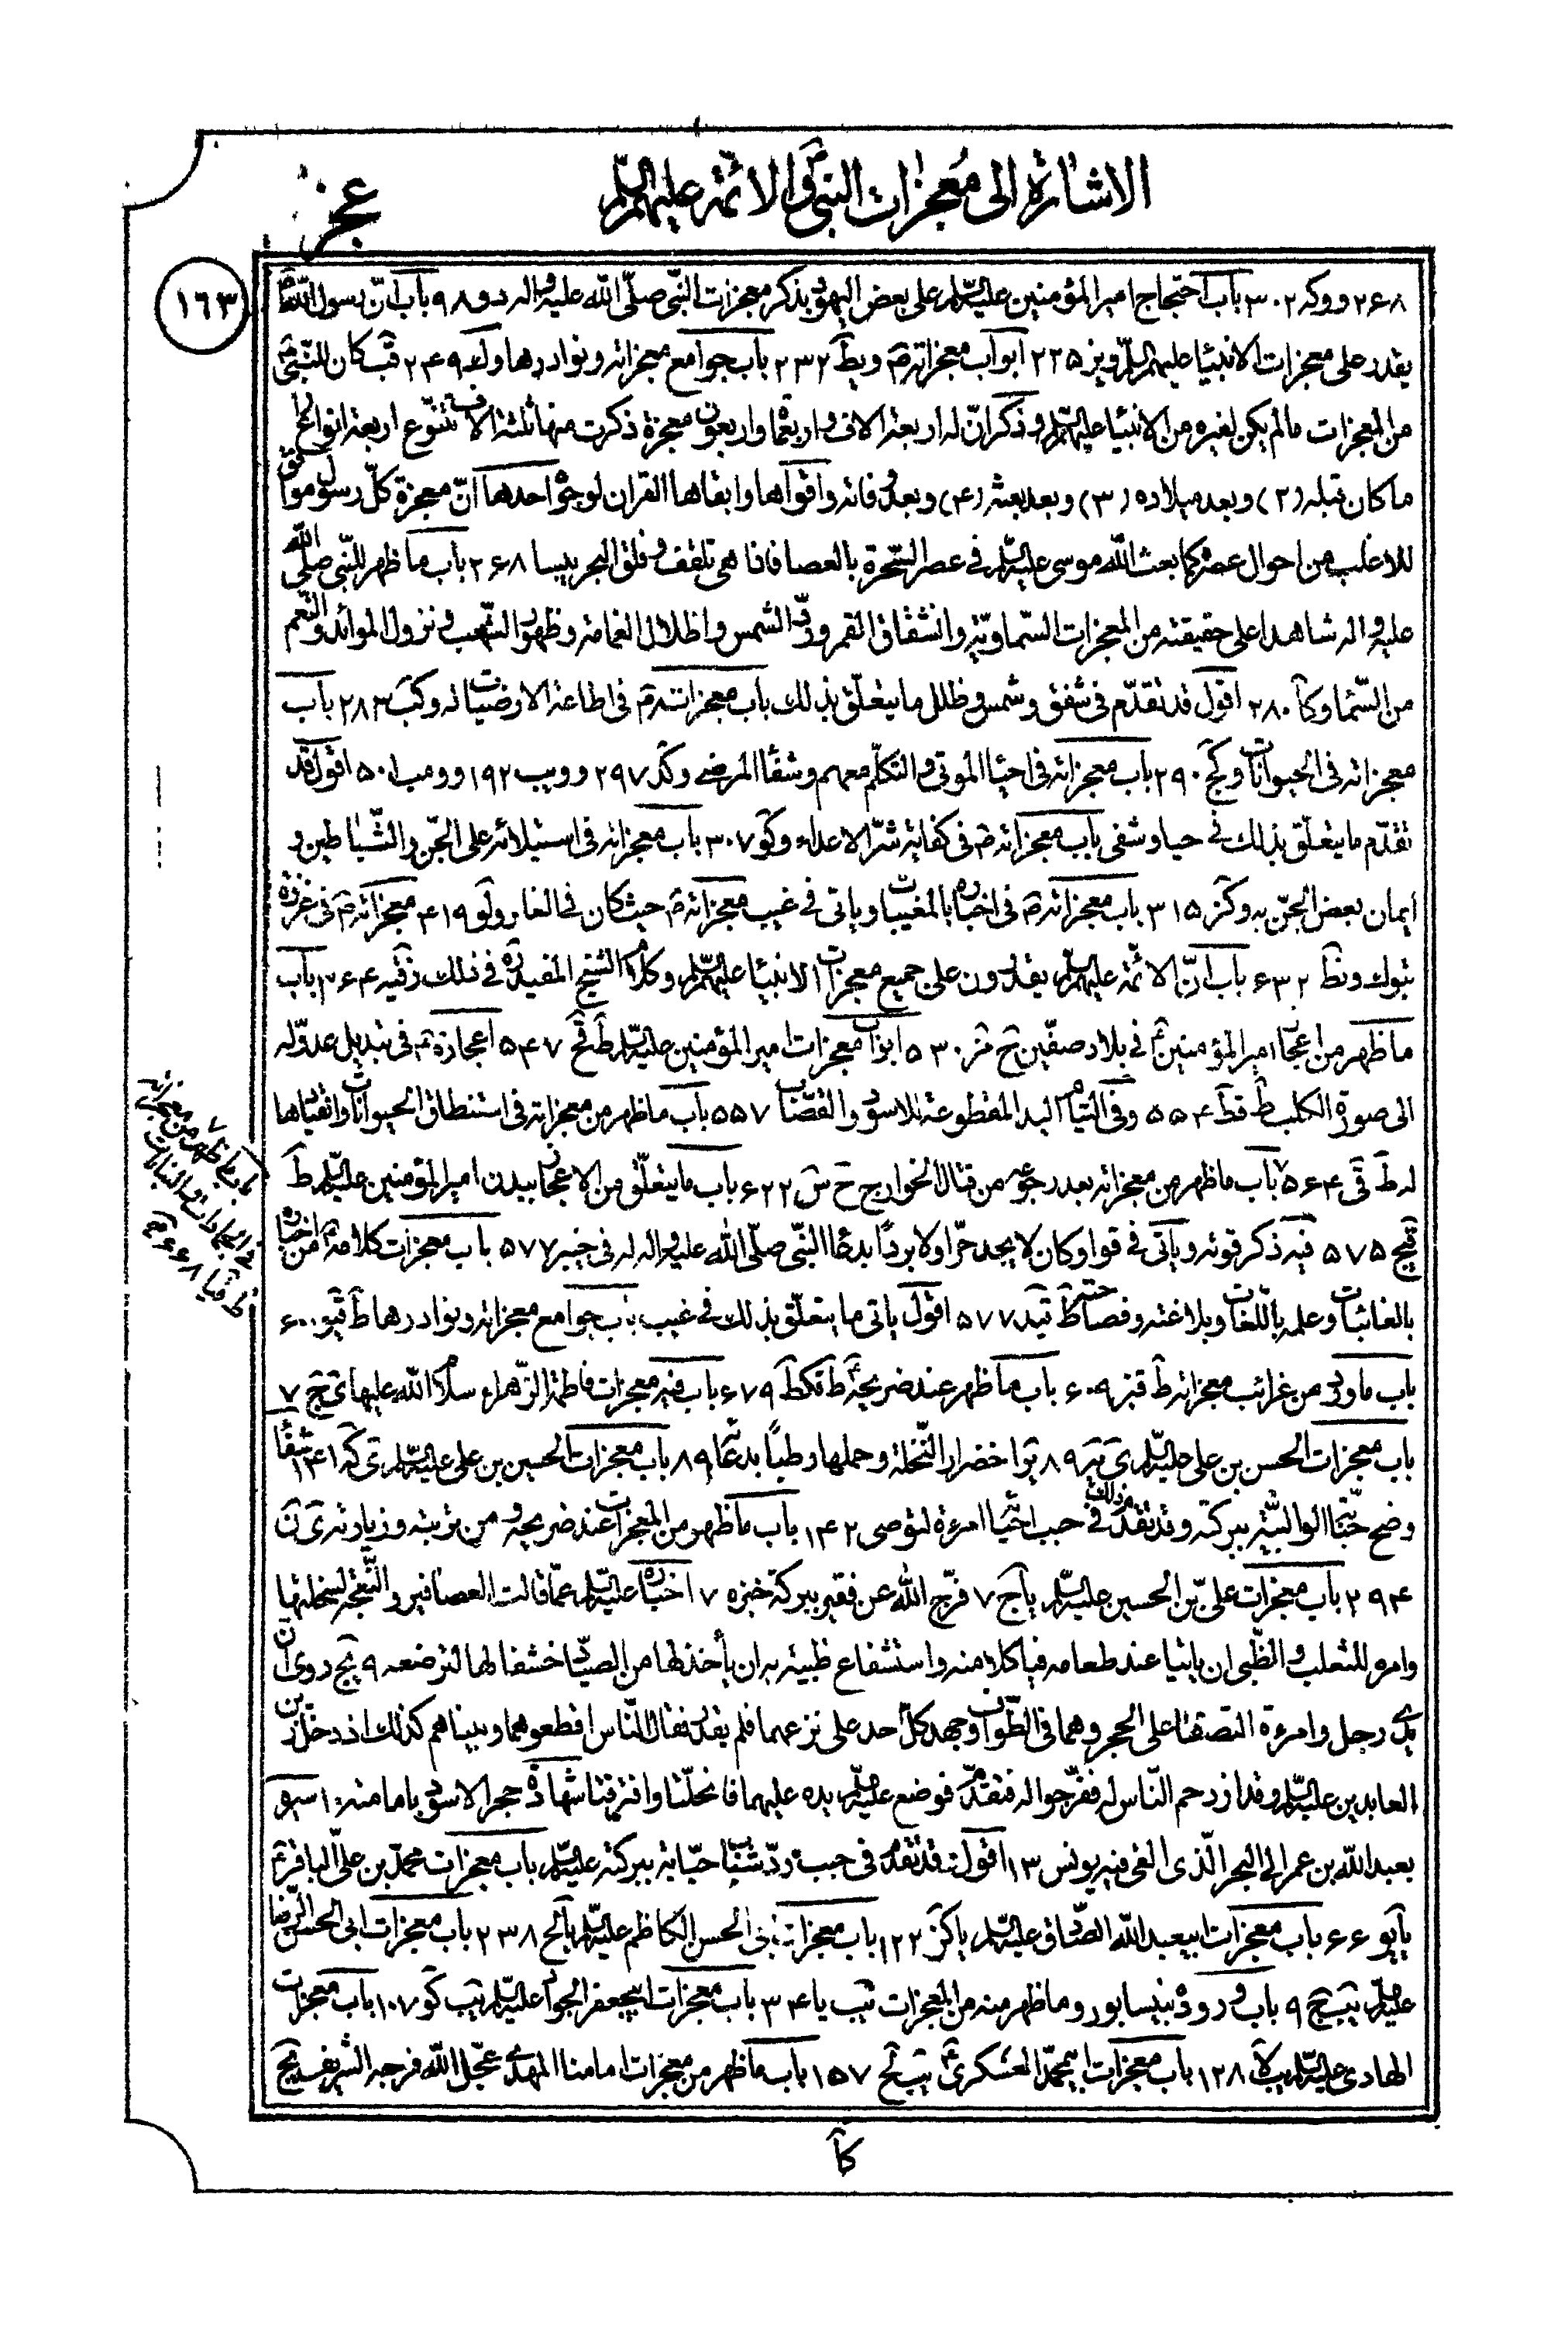 الاشارة الى معجزات النبى والائمة عليهم السلم
عجز
١٦٣
٢۶٨ ووكه ٣٠٢ باب احتجاج امير المؤمنين عليه السلم على بعض اليهود بذكر معجزات النبى صلى الله عليه واله دو ٩٨ باب ان رسول الله ص
يقدر على معجزات الانبياء عليهم السلم ويز ٢٢۵ ابواب معجزاته ص ويط ٢٣٢ باب جوامع معجزاته ونوادرها ٢۴٩ قب كان للنبى ص
من المعجزات مالم يكن لغيره من الانبياء عليهم السلم وذكر ان له اربعة الاف واربعمائة واربعون معجزة ذكرت منها ثلثة الاف تتنوع اربعة انواع
ما كان قبله (٢) وبعد ميلاده (٣) وبعد بعثه (۴) وبعد وفاته واقواها وابقاها القران لوجوه احدها ان معجزة كل رسول موافق
للاغلب من احوال عصره كما بعث الله موسى عليه السلم فى عصر السحرة بالعصا فاذا هى تلقف وفلق البحر يبسا ٢۶٨ باب ما ظهر للنبى صلى الله
عليه واله شاهدا على حقيقته من المعجزات السماوية وانشقاق القمر ورد الشمس واظلال الغمامة وظهور الشهب ونزول الموائد والنعم
من السماء وكا ٢٨٠ اقول قد تقدم فى شقق وشمس وظلل ما يتعلق بذلك باب معجزاته ص فى اطاعة الارضيات له وكب ٢٨٣ باب
معجزاته فى الحيوانات وكج ٢٩٠ باب معجزاته فى احياء الموتى والتكلم معهم وشفاء المرضى وكد ٢٩٧ وويب ١٩٢ وومب ۵٠١ اقول قد
تقدم ما يتعلق بذلك فى حيا وشفى باب معجزاته ص فى كفاية شر الاعداء وكو ٣٠٧ باب معجزاته فى استيلائه على الجن والشياطين و
ايمان بعض الجن به وكز ٣١۵ باب معجزاته ص فى اخباره بالمغيبات وياتى فى غيب معجزاته ص حيث كان فى الغار ولو ۴١٩ معجزاته ص فى غزوة
تبوك ونط ۶٣٢ باب ان الائمة عليهم السلم يقدرون على جميع معجزات الانبياء عليهم السلم وكلام الشيخ المفيد ره فى ذلك زقيه ٣۶۴ باب
ما ظهر من اعجاز امير المؤمنين ع فى بلاد صفين ح مز ۵٣٠ ابواب معجزات امير المؤمنين عليه السلم ط قح ۵۴٧ اعجازه ع فى تبديل عدو له
الى صورة الكلب ط قط ۵۵۴ وفى التيام اليد المقطوعة للاسود والقصاب ۵۵٧ باب ما ظهر من معجزاته فى استنطاق الحيوانات وانقيادها
له ط قى ۵۶۴ باب ما ظهر من معجزاته بعد رجوعه من قتال الخوارج ح س ۶٢٢ باب ما يتعلق من الاعجاز ببدن امير المؤمنين عليه السلم ط
قيج ۵٧۵ فيه ذكر قوته وياتى فى قوا وكان لا يجد حرا ولا بردا بدعاء النبى صلى الله عليه واله له فى خيبر ۵٧٧ باب معجزات كلامه ع من اخباره
بالغائبات وعلمه باللغات وبلاغته وفصاحته ط قيد ۵٧٧ اقول ياتى ما يتعلق بذلك فى غيب باب جوامع معجزاته ونوادرها ط قيو ۶٠٠
باب ما ورد من غرائب معجزاته ط قيز ۶٠٩ باب ما ظهر عند ضريحه ع ط قكط ۶٧٩ باب فيه معجزات فاطمة الزهراء سلام الله عليها ى ج ٧
باب معجزات الحسن بن على عليه السلم ى يه ٨٩ ير اخضرار النخلة وحملها رطبا بدعائه ٨٩ باب معجزات الحسين بن على عليه السلم ى كه ١۴١ شفاء
وضح حبابة الوالبية ببركته وقد تقدم ذلك فى حبب احيائه امرءة لتوصى ١۴٢ باب ما ظهر من المعجزات عند ضريحه ومن تربته وزيارته ى ن
٢٩۴ باب معجزات على بن الحسين عليه السلم يا ج ٧ فرج الله عن فقير ببركة خبزه ٧ اخباره عليه السلم عما قالت العصافير والنعجة لسخلتها
وامره للثعلب والظبى ان ياتيا عند طعامه فياكلا منه واستشفاع ظبية به ان يأخذ لها من الصياد خشفا لها لترضعه ٩ يج روى ان
يدى رجل وامرءة التصقتا على الحجر وهما فى الطواف وجهد كل احد على نزعهما فلم يقدر فقال الناس اقطعوهما وبيناهم كذلك اذ دخل زين
العابدين عليه السلم وقد ازدحم الناس له ففرجوا له فتقدم فوضع عليه السلم يده عليهما فانحلتا وافترقتا شهادة حجر الاسود بامامته ١٠ سيره
بعبد الله بن عمر الى البحر الذى القى فيه يونس ١٣ اقول قد تقدم فى حبب رد شباب حبابة ببركته عليه السلم باب معجزات محمد بن على الباقر ع
يا يو ۶۶ باب معجزات ابيعبد الله الصادق عليه السلم يا كز ١٢٢ باب معجزات ابى الحسن الكاظم عليه السلم يا لح ٢٣٨ باب معجزات ابى الحسن الرضا
عليه السلم يب ج ٩ باب وروده بنيسابور وما ظهر منه من المعجزات يب يا ٣۴ باب معجزات ابيجعفر الجواد عليه السلم يب كو ١٠٧ باب معجزات
الهادى عليه السلم يب لا ١٢٨ باب معجزات ابيمحمد العسكرى ع يب لح ١۵٧ باب ما ظهر من معجزات امامنا المهدى عجل الله فرجه الشريف يج
باب ما ظهر من معجزاته
فى الجمادات والنباتات
ط قيا ۶۶٨
كا